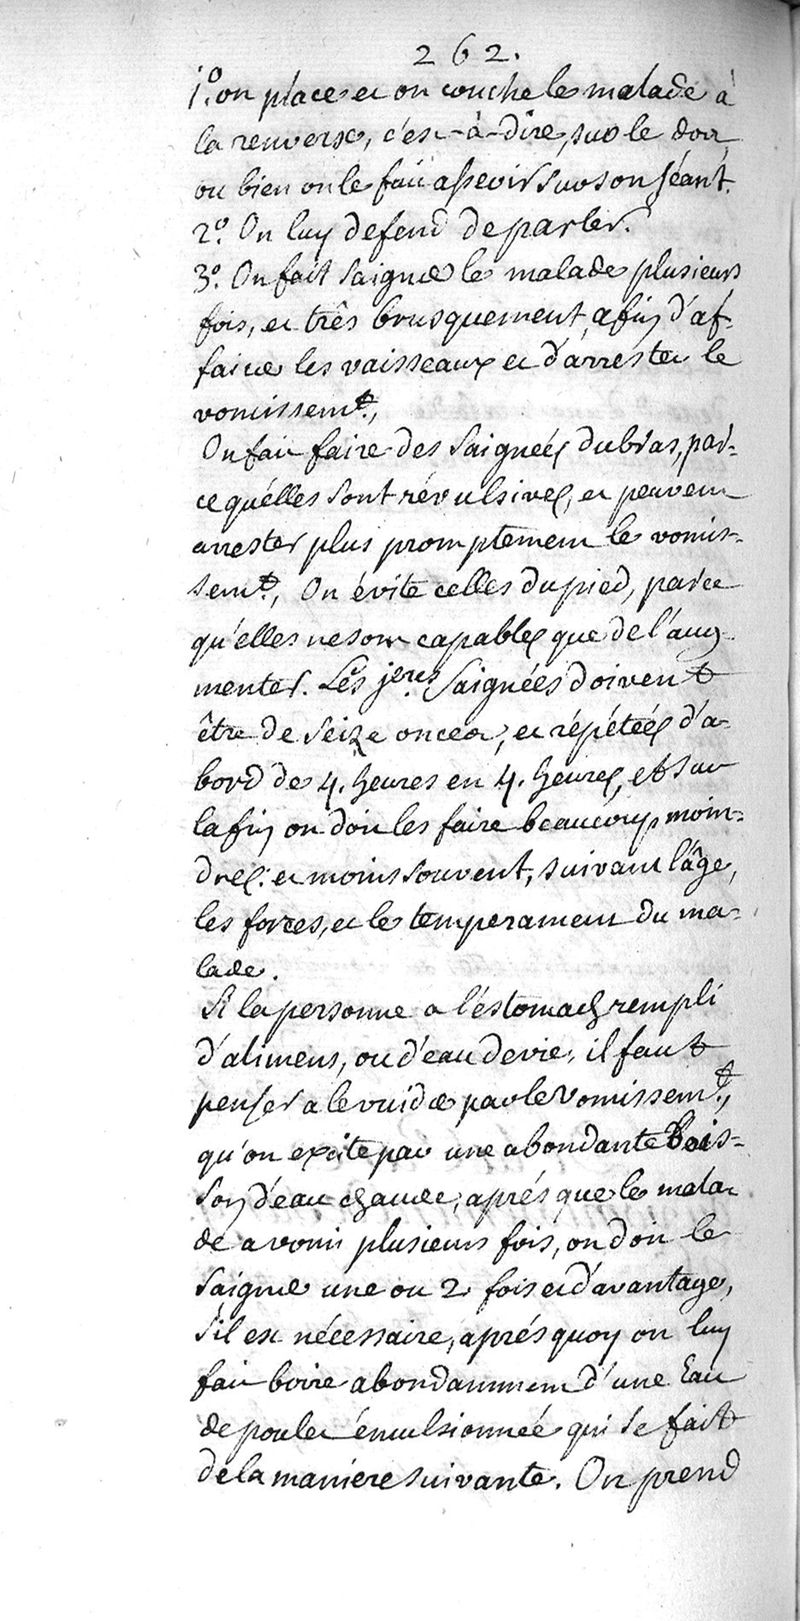 262.
1.º on place et on couche le malade à
la renverse, c'est-à-dire, sur le dos,
ou bien on le fait asseoir sur son séant.
2.º On luy défend de parler.
3.º On fait saigner le malade plusieurs
fois, et très brusquement, afin d'af-
faisser les vaisseaux et d'arrester le
vomissemt.,
On fait faire des saignées du bras, par-
ce qu'elles sont révulsives, et peuvent
arrester plus promptement le vomis-
semt., On évite celles du pied, parce
qu'elles ne sont capables que de l'aug-
menter. Les jeres saignées doivent
être de seize onces, et répétées d'a-
bord de 4. heures en 4. heures, et sur
la fin on doit les faire beaucoup moin-
dres. et moins souvent, suivant l'âge,
les forces, et le temperament du ma-
lade.
Si la personne a l'estomach rempli
d'alimens, ou d'eau de vie, il faut
penser a le vuider par le vomissemt.,
qu'on excite par une abondante bois-
son d'eau chaude, aprés que le mala-
de a vomi plusieurs fois, on doit le
saigner une ou 2 fois et d'avantage,
s'il est nécessaire, aprés quoy on luy
fait boire abondamment d'une Eau
de poulet émulsionnée qui se fait
de la maniere suivante. On prend